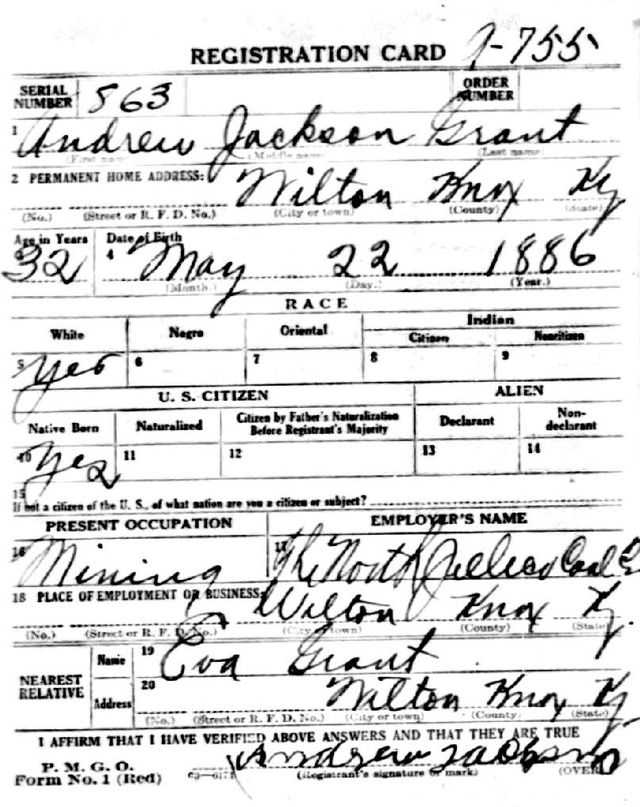 REGISTRATION CARD 9-755
SERIAL NUMBER 863 ORDER NUMBER
1 Andrew Jackson Grant
(First name) (Middle name) (Last name)
2 PERMANENT HOME ADDRESS: Wilton Knox Ky
(No.) (Street or R. F. D. No.) (City or town) (County) (State)
Age in Years Date of Birth
32 4 May 22 1886
(Month.) (Day.) (Year.)
RACE
White Negro Oriental Indian
Citizen Noncitizen
5 Yes 6 7 8 9
U. S. CITIZEN ALIEN
Native Born Naturalized Citizen by Father's Naturalization Before Registrant's Majority Declarant Non-declarant
10 Yes 11 12 13 14
15
If not a citizen of the U. S., of what nation are you a citizen or subject?
PRESENT OCCUPATION EMPLOYER'S NAME
16 Mining 17 The North Jellico Coal
18 PLACE OF EMPLOYMENT OR BUSINESS: Wilton Knox Ky.
(No.) (Street or R. F. D. No.) (City or town) (County) (State)
NEAREST RELATIVE Name 19 Eva Grant
Address 20 Wilton Knox Ky
(No.) (Street or R. F. D. No.) (City or town) (County) (State)
I AFFIRM THAT I HAVE VERIFIED ABOVE ANSWERS AND THAT THEY ARE TRUE
P. M. G. O.
Form No. 1 (Red) Andrew
(Registrant's signature or mark) (OVER)